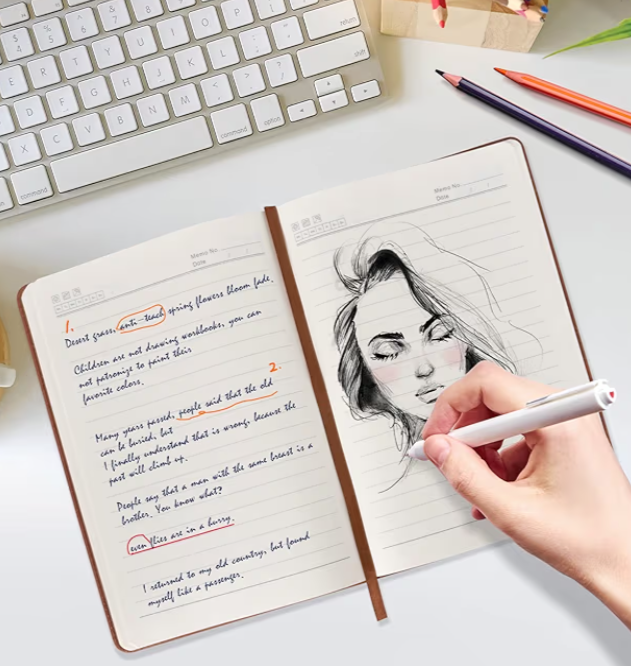 return
shift
command
option
command
Memo No.
Date / /
1.
Desert grass, anti-teach spring flowers bloom fade.
Children are not drawing workbooks, you can
not patronize to paint their
favorite colors.
2.
Many years passed, people said that the old
can be buried, but
I finally understand that is wrong, because the
past will climb up.
People say that a man with the same breast is a
brother. You know what?
even flies are in a hurry.
I returned to my old country, but found
myself like a passenger.
Memo No.
Date / /